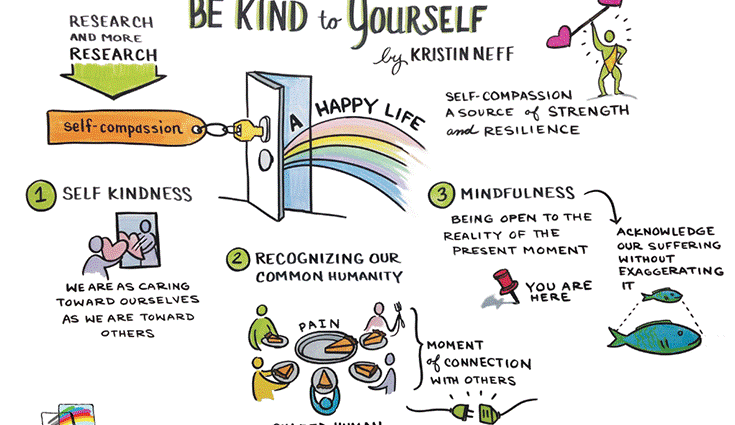 BE KIND to YOURSELF
by KRISTIN NEFF
RESEARCH
AND MORE
RESEARCH
self-compassion
A HAPPY LIFE
SELF-COMPASSION
A SOURCE of STRENGTH
and RESILIENCE
1 SELF KINDNESS
WE ARE AS CARING
TOWARD OURSELVES
AS WE ARE TOWARD
OTHERS
2 RECOGNIZING OUR
COMMON HUMANITY
PAIN
MOMENT
of CONNECTION
WITH OTHERS
3 MINDFULNESS
BEING OPEN TO THE
REALITY OF THE
PRESENT MOMENT
YOU ARE
HERE
ACKNOWLEDGE
OUR SUFFERING
WITHOUT
EXAGGERATING
IT